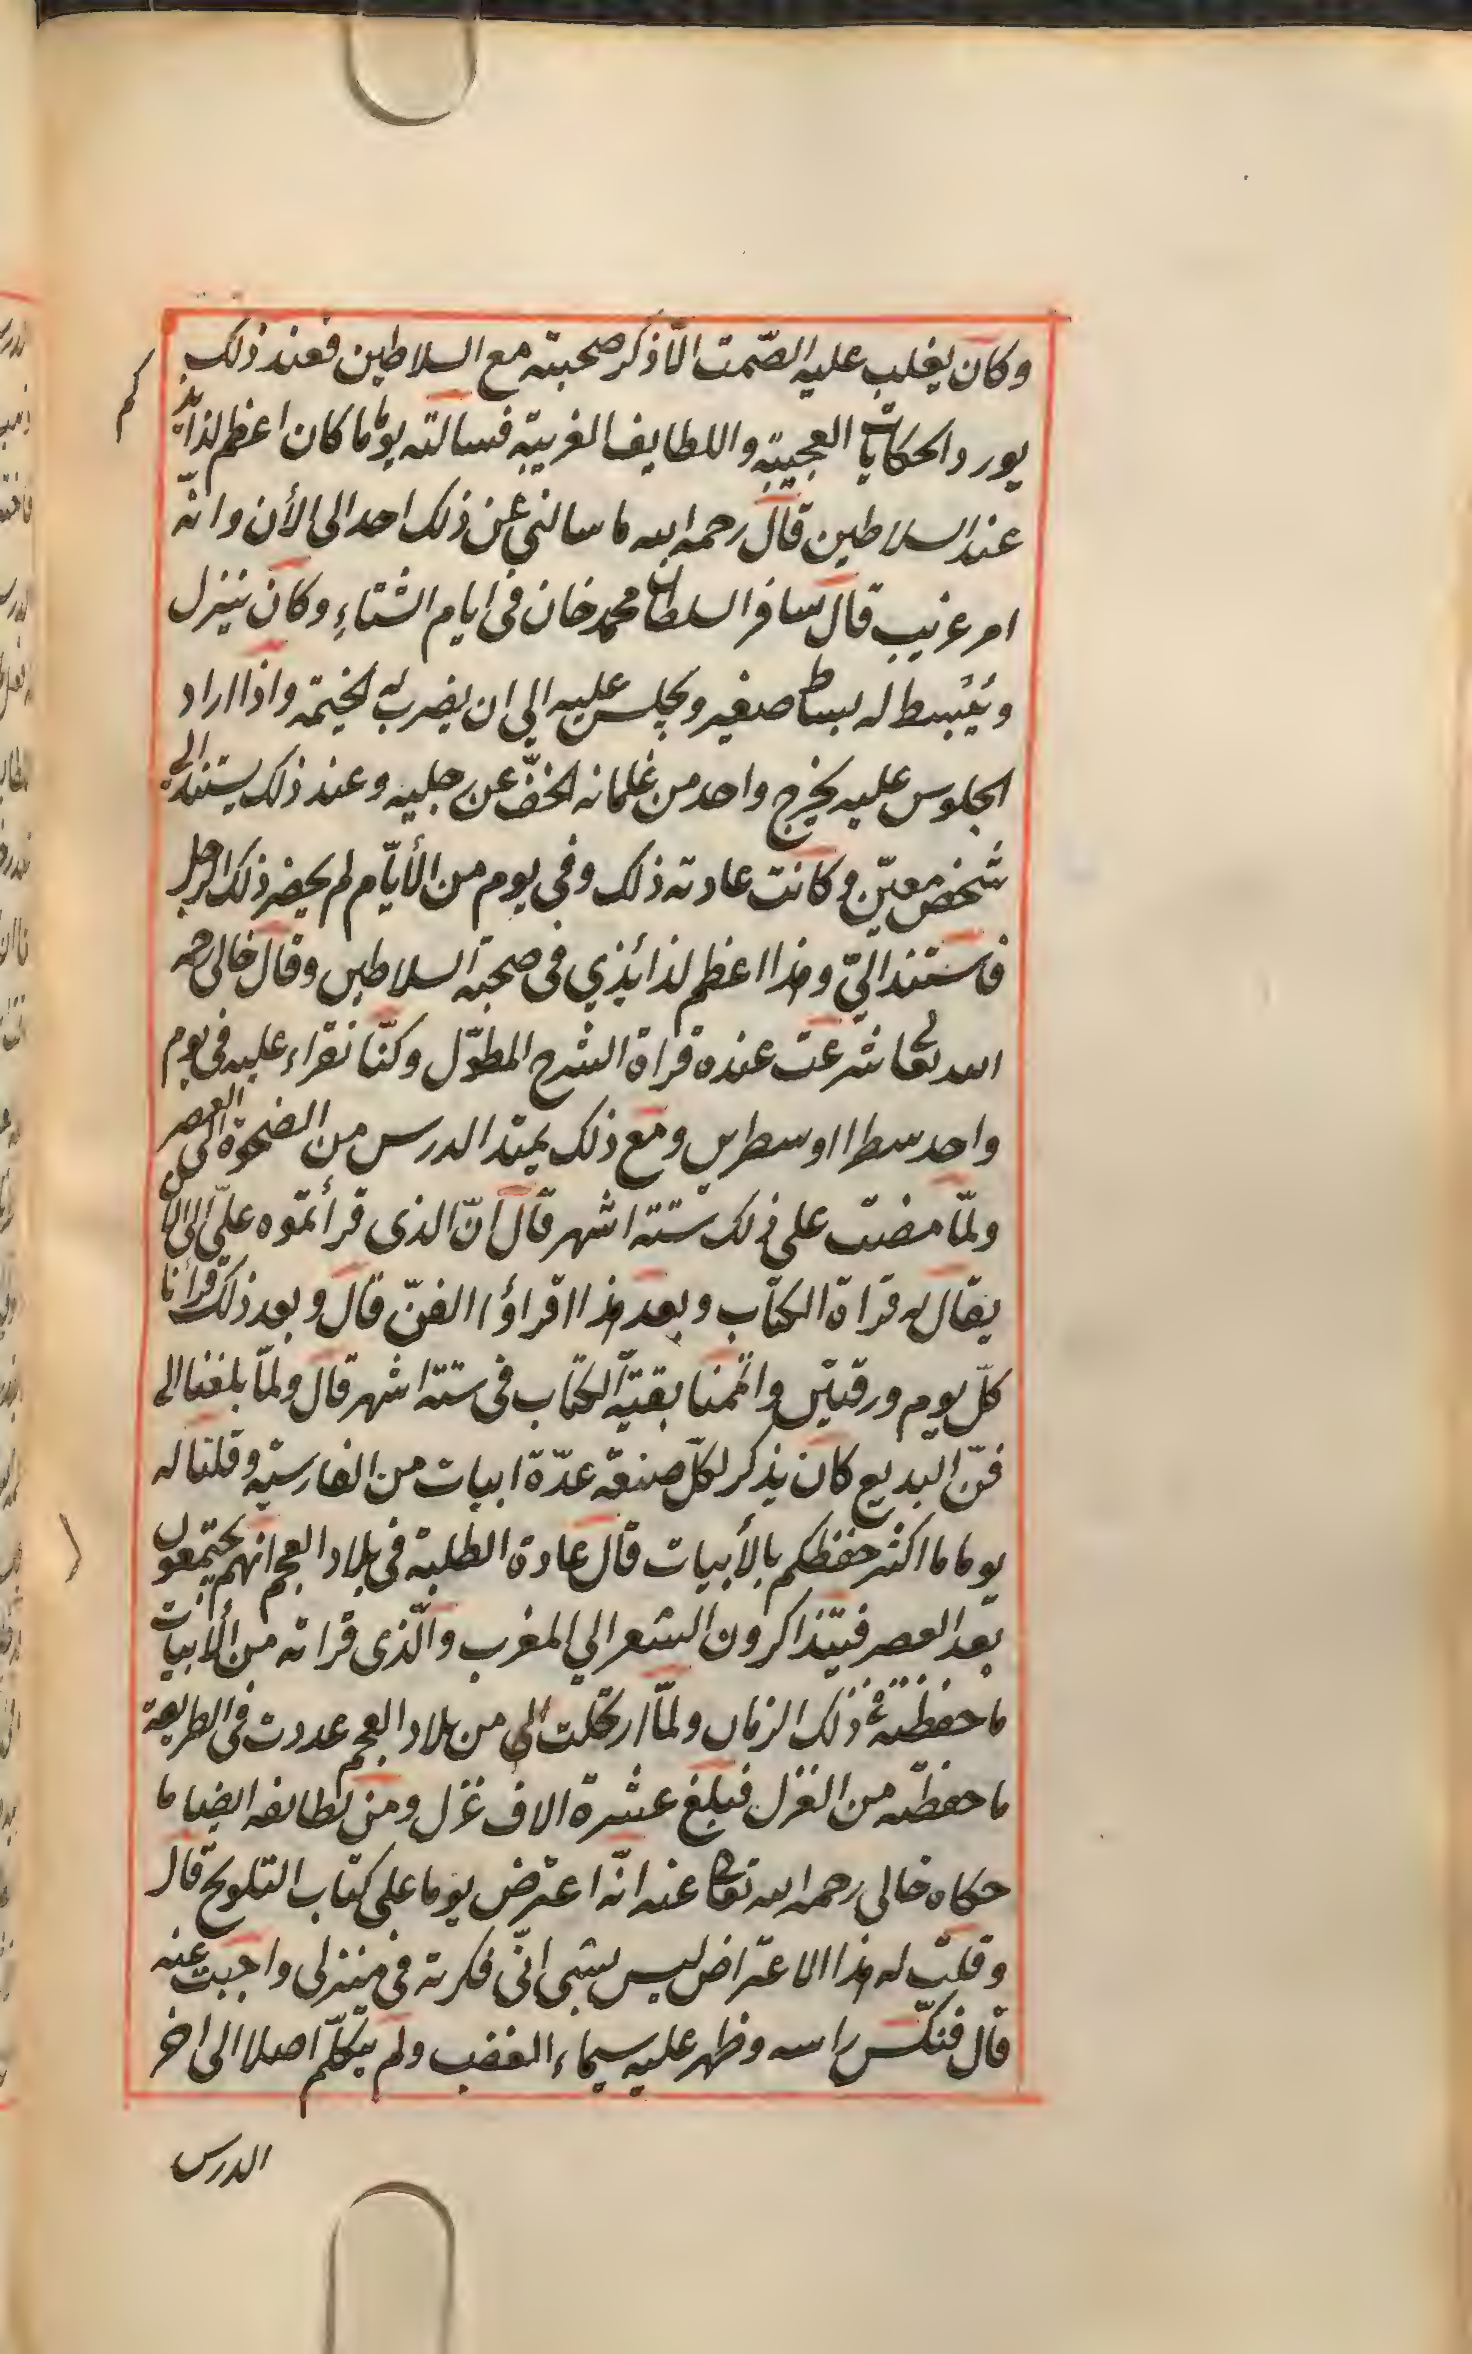 وكان يغلب عليه الصّمت الّا ذكر صحبته مع السلاطين فعند ذلك
يورد الحكايات العجيبة واللطايف الغريبة فسالته يومًا ما كان اعظم لذايذكم
عند السلاطين قال رحمه الله ما سالني عن ذلك احد الى الأن وانّه
امر غريب قال سافر السلطان محمد خان في ايام الشتاءِ وكان ينزل
ويُبسط له بساط صغير ويجلس عليه الي ان يضرب له الخيمة واذا اراد
الجلوس عليه يخرج واحد من غلمانه الخفّ عن رجليه وعند ذلك يستند الي
شخص معيّن وكانت عادته ذلك وفي يوم من الأيّام لم يحضر ذلك الرجل
فاستند اليّ وهذا اعظم لذائذي في صحبة السلاطين وقال خالي رحمه
الله تعالى شرعت عنده قراة الشرح المطوّل وكنّا نقراء عليه في يوم
واحد سطرا او سطرين ومع ذلك يمتد الدرس من الضحوة الى العصر
ولمّا مضت على ذلك ستة اشهر قال انّ الذى قرأتموه علىّ الى الأن
يقال له قراة الكتاب وبعد هذا اقراؤا الفنّ قال وبعد ذلك قرأنا
كلّ يوم ورقتين واتممنا بقيّة الكتاب في ستة اشهر قال ولمّا بلغنا الى
فنّ البديع كان يذكر لكلّ صنعة عدّة ابيات من الفارسية وقلنا له
يوما ما اكثر حفظكم بالأبيات قال عادة الطلبة في بلاد العجم انهم يجتمعون
بعد العصر فيتذاكرون الشعر الي المغرب والّذى قراته من الأبيات
ما حفظته في ذلك الزمان ولمّا ارتحلت الي من بلاد العجم عددت في الطريق
ما حفظته من الغزل فبلغ عشرة الاف غزل ومن لطائفه ايضا ما
حكاه خالى رحمه الله تعالى عنه انّه اعترض يوما على كتاب التلويح قال
وقلت له هذا الاعتراض ليس بشى انّى فكرته في منزلى واجبت عنه
قال فنكّس راسه وظهر عليه سيماء الغضب ولم يتكلّم اصلا الى اخر
الدرس